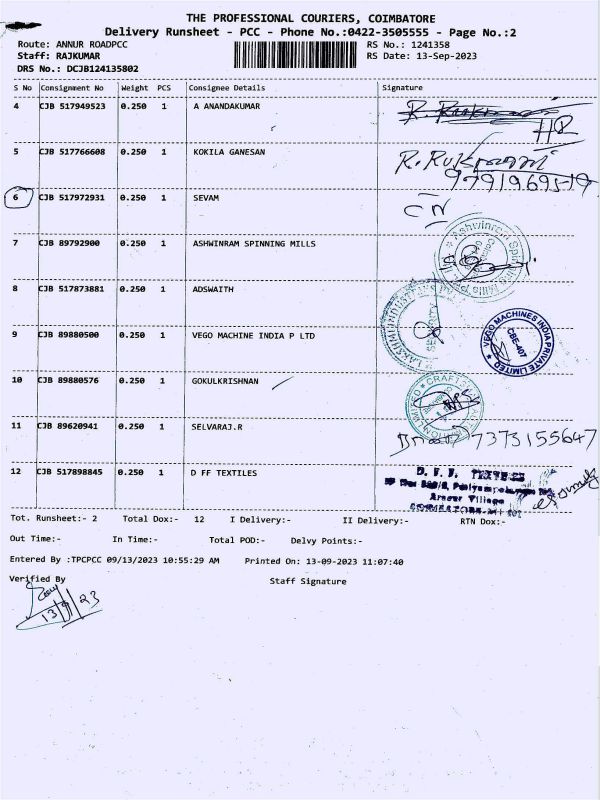 THE PROFESSIONAL COURIERS, COIMBATORE
Delivery Runsheet - PCC - Phone No.:0422-3505555 - Page No.:2
Route: ANNUR ROADPCC
RS No.: 1241358
Staff: RAJKUMAR
RS Date: 13-Sep-2023
DRS No.: DCJB124135802
S No Consignment No Weight PCS Consignee Details Signature
4 CJB 517949523 0.250 1 A ANANDAKUMAR
5 CJB 517766608 0.250 1 KOKILA GANESAN
R. Rukmani
9791969519
6 CJB 517972931 0.250 1 SEVAM
CN
7 CJB 89792900 0.250 1 ASHWINRAM SPINNING MILLS
Ashwinram Spinning Mills
8 CJB 517873881 0.250 1 ADSWAITH
SECURITY
9 CJB 89880500 0.250 1 VEGO MACHINE INDIA P LTD
VEGO MACHINES INDIA PRIVATE LIMITED
CBE-407
10 CJB 89880576 0.250 1 GOKULKRISHNAN
11 CJB 89620941 0.250 1 SELVARAJ.R
7373155647
12 CJB 517898845 0.250 1 D FF TEXTILES
D. F. F. TEXTILES
Arasur Village
Tot. Runsheet:- 2 Total Dox:- 12 I Delivery:- II Delivery:- RTN Dox:-
Out Time:- In Time:- Total POD:- Delvy Points:-
Entered By :TPCPCC 09/13/2023 10:55:29 AM Printed On: 13-09-2023 11:07:40
Verified By Staff Signature
13/9/23